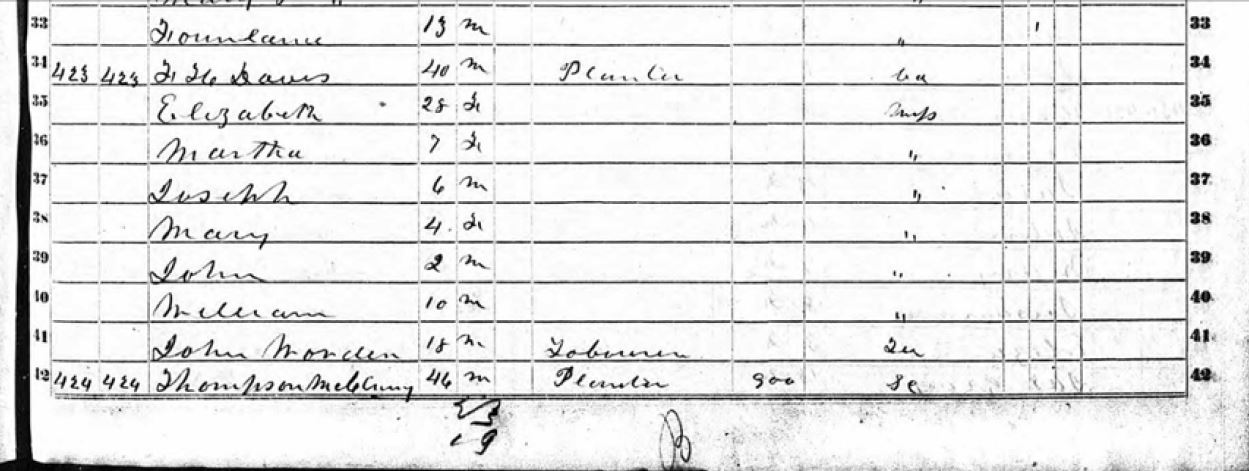 33 13 m " 33
34 423 423 Davis 40 m Planter 34
35 Elizabeth 28 F Miss 35
36 Martha 7 F " 36
37 Joseph 6 m " 37
38 Mary 4 F " 38
39 John 2 m " 39
40 William 10 m " 40
41 John Worden 18 m Labourer 41
42 424 424 Thompson McClung 46 m Planter 900 Sc 42
19
B